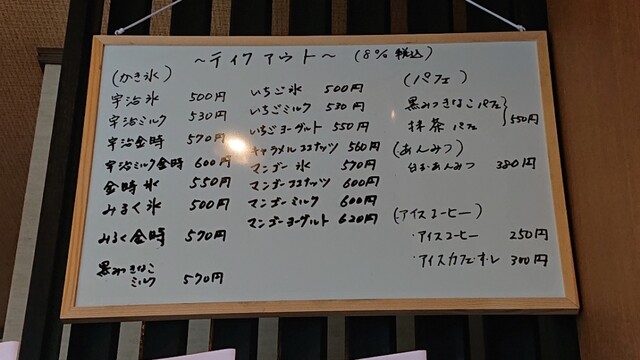 ～テイクアウト～ (8% 税込)
(かき氷)
宇治氷 500円
宇治ミルク 530円
宇治金時 570円
宇治ミルク金時 600円
金時氷 550円
みるく氷 500円
みるく金時 570円
黒みつきなこ
ミルク 570円
いちご氷 500円
いちごミルク 530円
いちごヨーグルト 550円
キャラメルココナッツ 560円
マンゴー氷 570円
マンゴーココナッツ 600円
マンゴーミルク 600円
マンゴーヨーグルト 620円
(パフェ)
黒みつきなこパフェ
抹茶パフェ 550円
(あんみつ)
白玉あんみつ 380円
(アイスコーヒー)
・アイスコーヒー 250円
・アイスカフェ・オ・レ 300円